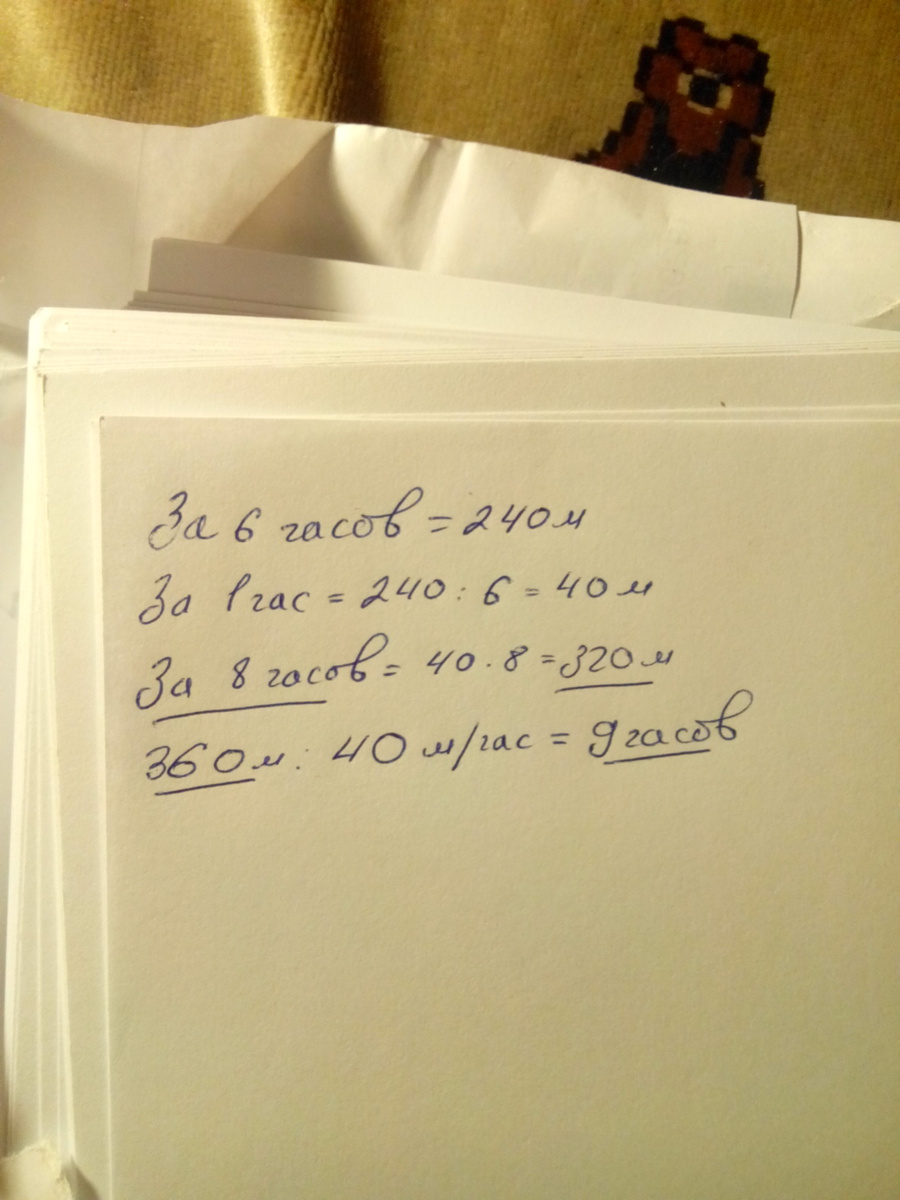 За 6 часов = 240 м
За 1 час = 240 : 6 = 40 м
За 8 часов = 40 · 8 = 320 м
360 м : 40 м/час = 9 часов